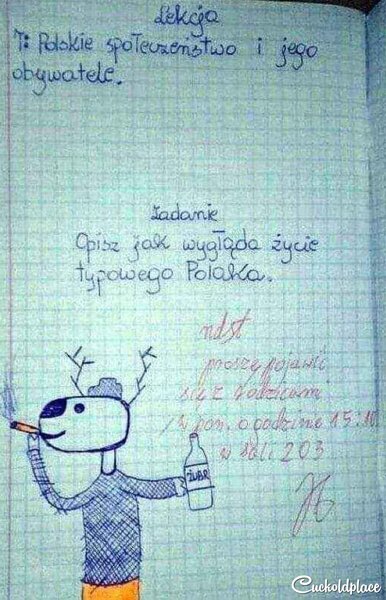 Lekcja
T: Polskie społeczeństwo i jego
obywatele.
Zadanie
Opisz jak wygląda życie
typowego Polaka.
ndst
proszę pojawić
się z rodzicami
w pon. o godzinie 15:10
w sali 203
ŻUBR
Cuckoldplace